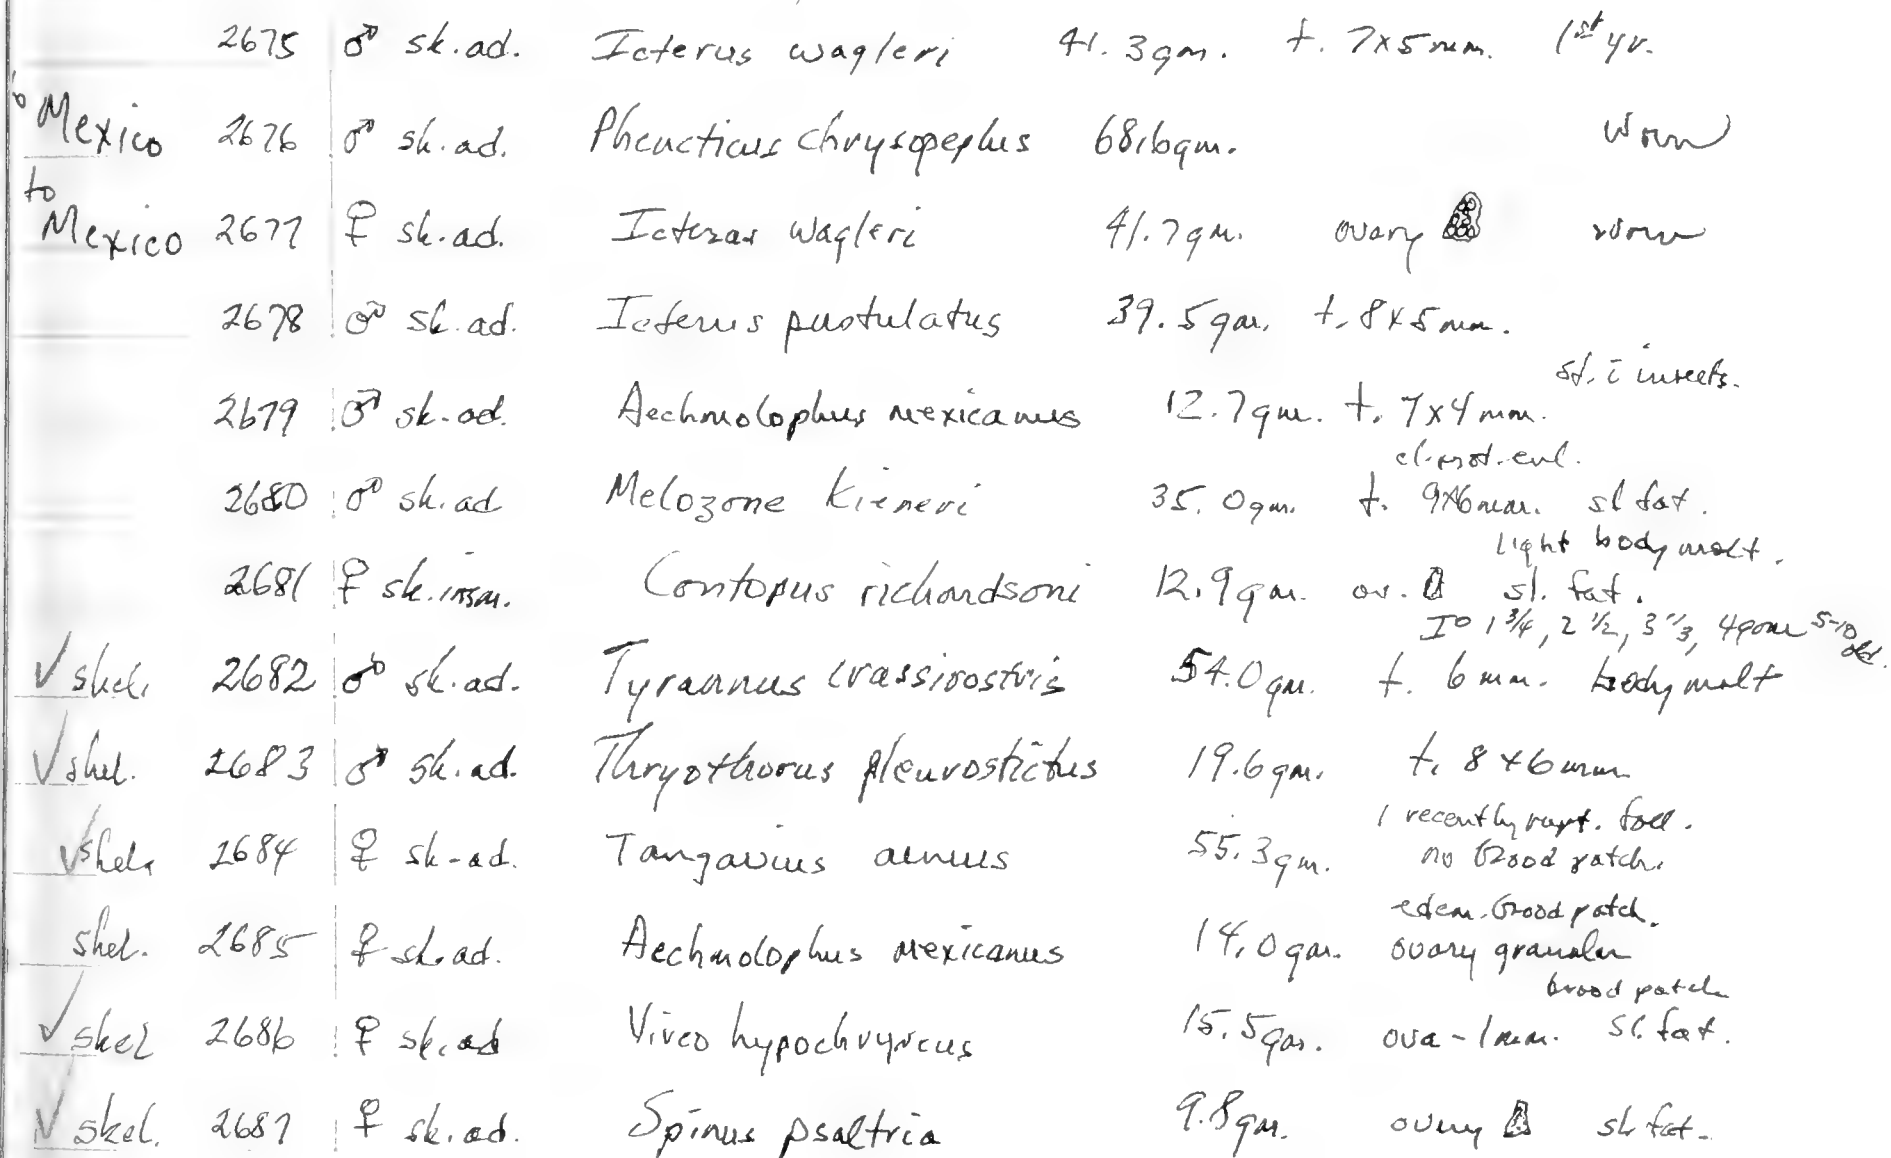 2675 ♂ sk. ad. Icterus wagleri 41.3gm. t. 7x5mm. 1st yr.
to
Mexico 2676 ♂ sk. ad. Pheucticus chrysopeplus 68.6gm. worn
to
Mexico 2677 ♀ sk. ad. Icterus wagleri 41.7gm. ovary worn
2678 ♂ sk. ad. Icterus pustulatus 39.5gm. t. 8x5mm.
st. c̄ insects.
2679 ♂ sk. ad. Aechmolophus mexicanus 12.7gm. t. 7x4mm.
cl. prot. enl.
2680 ♂ sk. ad Melozone kieneri 35.0gm. t. 9x6mm. sl fat.
light body molt.
2681 ♀ sk. imm. Contopus richardsoni 12.9gm. ov. sl. fat.
I° 1 3/4, 2 1/2, 3 1/3, 4 gone 5-10 old.
✓ skel. 2682 ♂ sk. ad. Tyrannus crassirostris 54.0gm. t. 6mm. body molt
✓ skel. 2683 ♂ sk. ad. Thryothorus pleurostictus 19.6gm. t. 8x6mm
1 recently rupt. foll.
✓ skel. 2684 ♀ sk-ad. Tangavius aeneus 55.3gm. no brood patch.
edem. brood patch.
skel. 2685 ♀ sk. ad. Aechmolophus mexicanus 14.0gm. ovary granular
brood patch
✓ skel 2686 ♀ sk. ad Vireo hypochryseus 15.5gm. ova-1mm. sl. fat.
✓ skel. 2687 ♀ sk. ad. Spinus psaltria 9.8gm. ovary sl. fat.